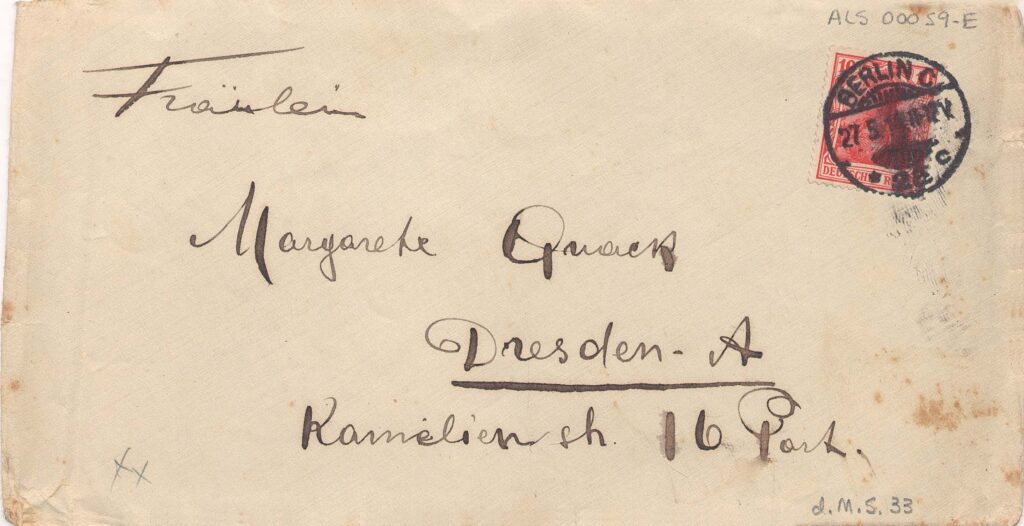 ALS 00059-E
Fräulein
10
BERLIN C.
27.5.
2 c
DEUTSCHES R
Margarete Quack
Dresden-A
Kamelienstr. 16 Part.
xx
d.M.S. 33